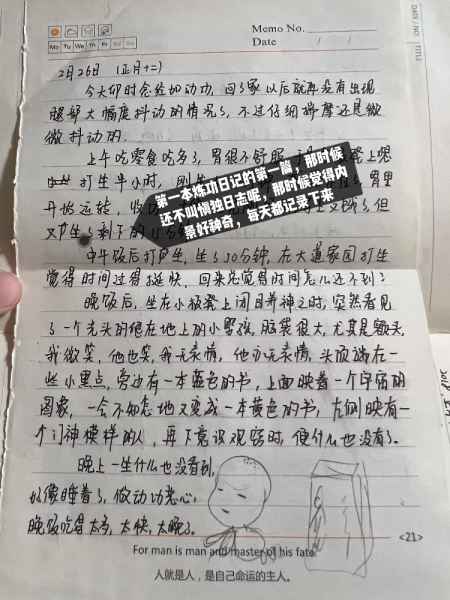 Memo No.
Mo Tu We Th Fr Sa Su
Date / /
DATE / NO.
TITLE
2月26日 (正月十二)
今天卯时念经加动功,回了家以后就再没有出现
腿部大幅度抖动的情况了,不过仔细揣摩还是微
微抖动的。
上午吃零食吃多了,胃很不舒服
打坐半小时,
胃里
开始运转,
但
又
剩下的
中午饭后打坐,坐了30分钟,在大道家园打坐
觉得时间过得挺快,回来总觉得时间怎么还不到?
晚饭后,坐在小板凳上闭目养神之时,突然看见
了一个光头的倦在地上的小婴孩,脑袋很大,尤其是额头,
我微笑,他也笑,我无表情,他亦无表情,头顶端有一
些小黑点,旁边有一本蓝色的书,上面映着一个宇宙的
图象,一会不知怎地又变成一本黄色的书,左侧映有一
个门神模样的人,再下意识观窃时,便什么也没有了。
晚上一坐什么也没看到,
好像睡着了,做动功恶心,
晚饭吃得太多,太快,太晚了。
第一本炼功日记的第一篇,那时候
还不叫慎独日志呢,那时候觉得内
景好神奇,每天都记录下来
<21>
For man is man and master of his fate.
人就是人,是自己命运的主人。